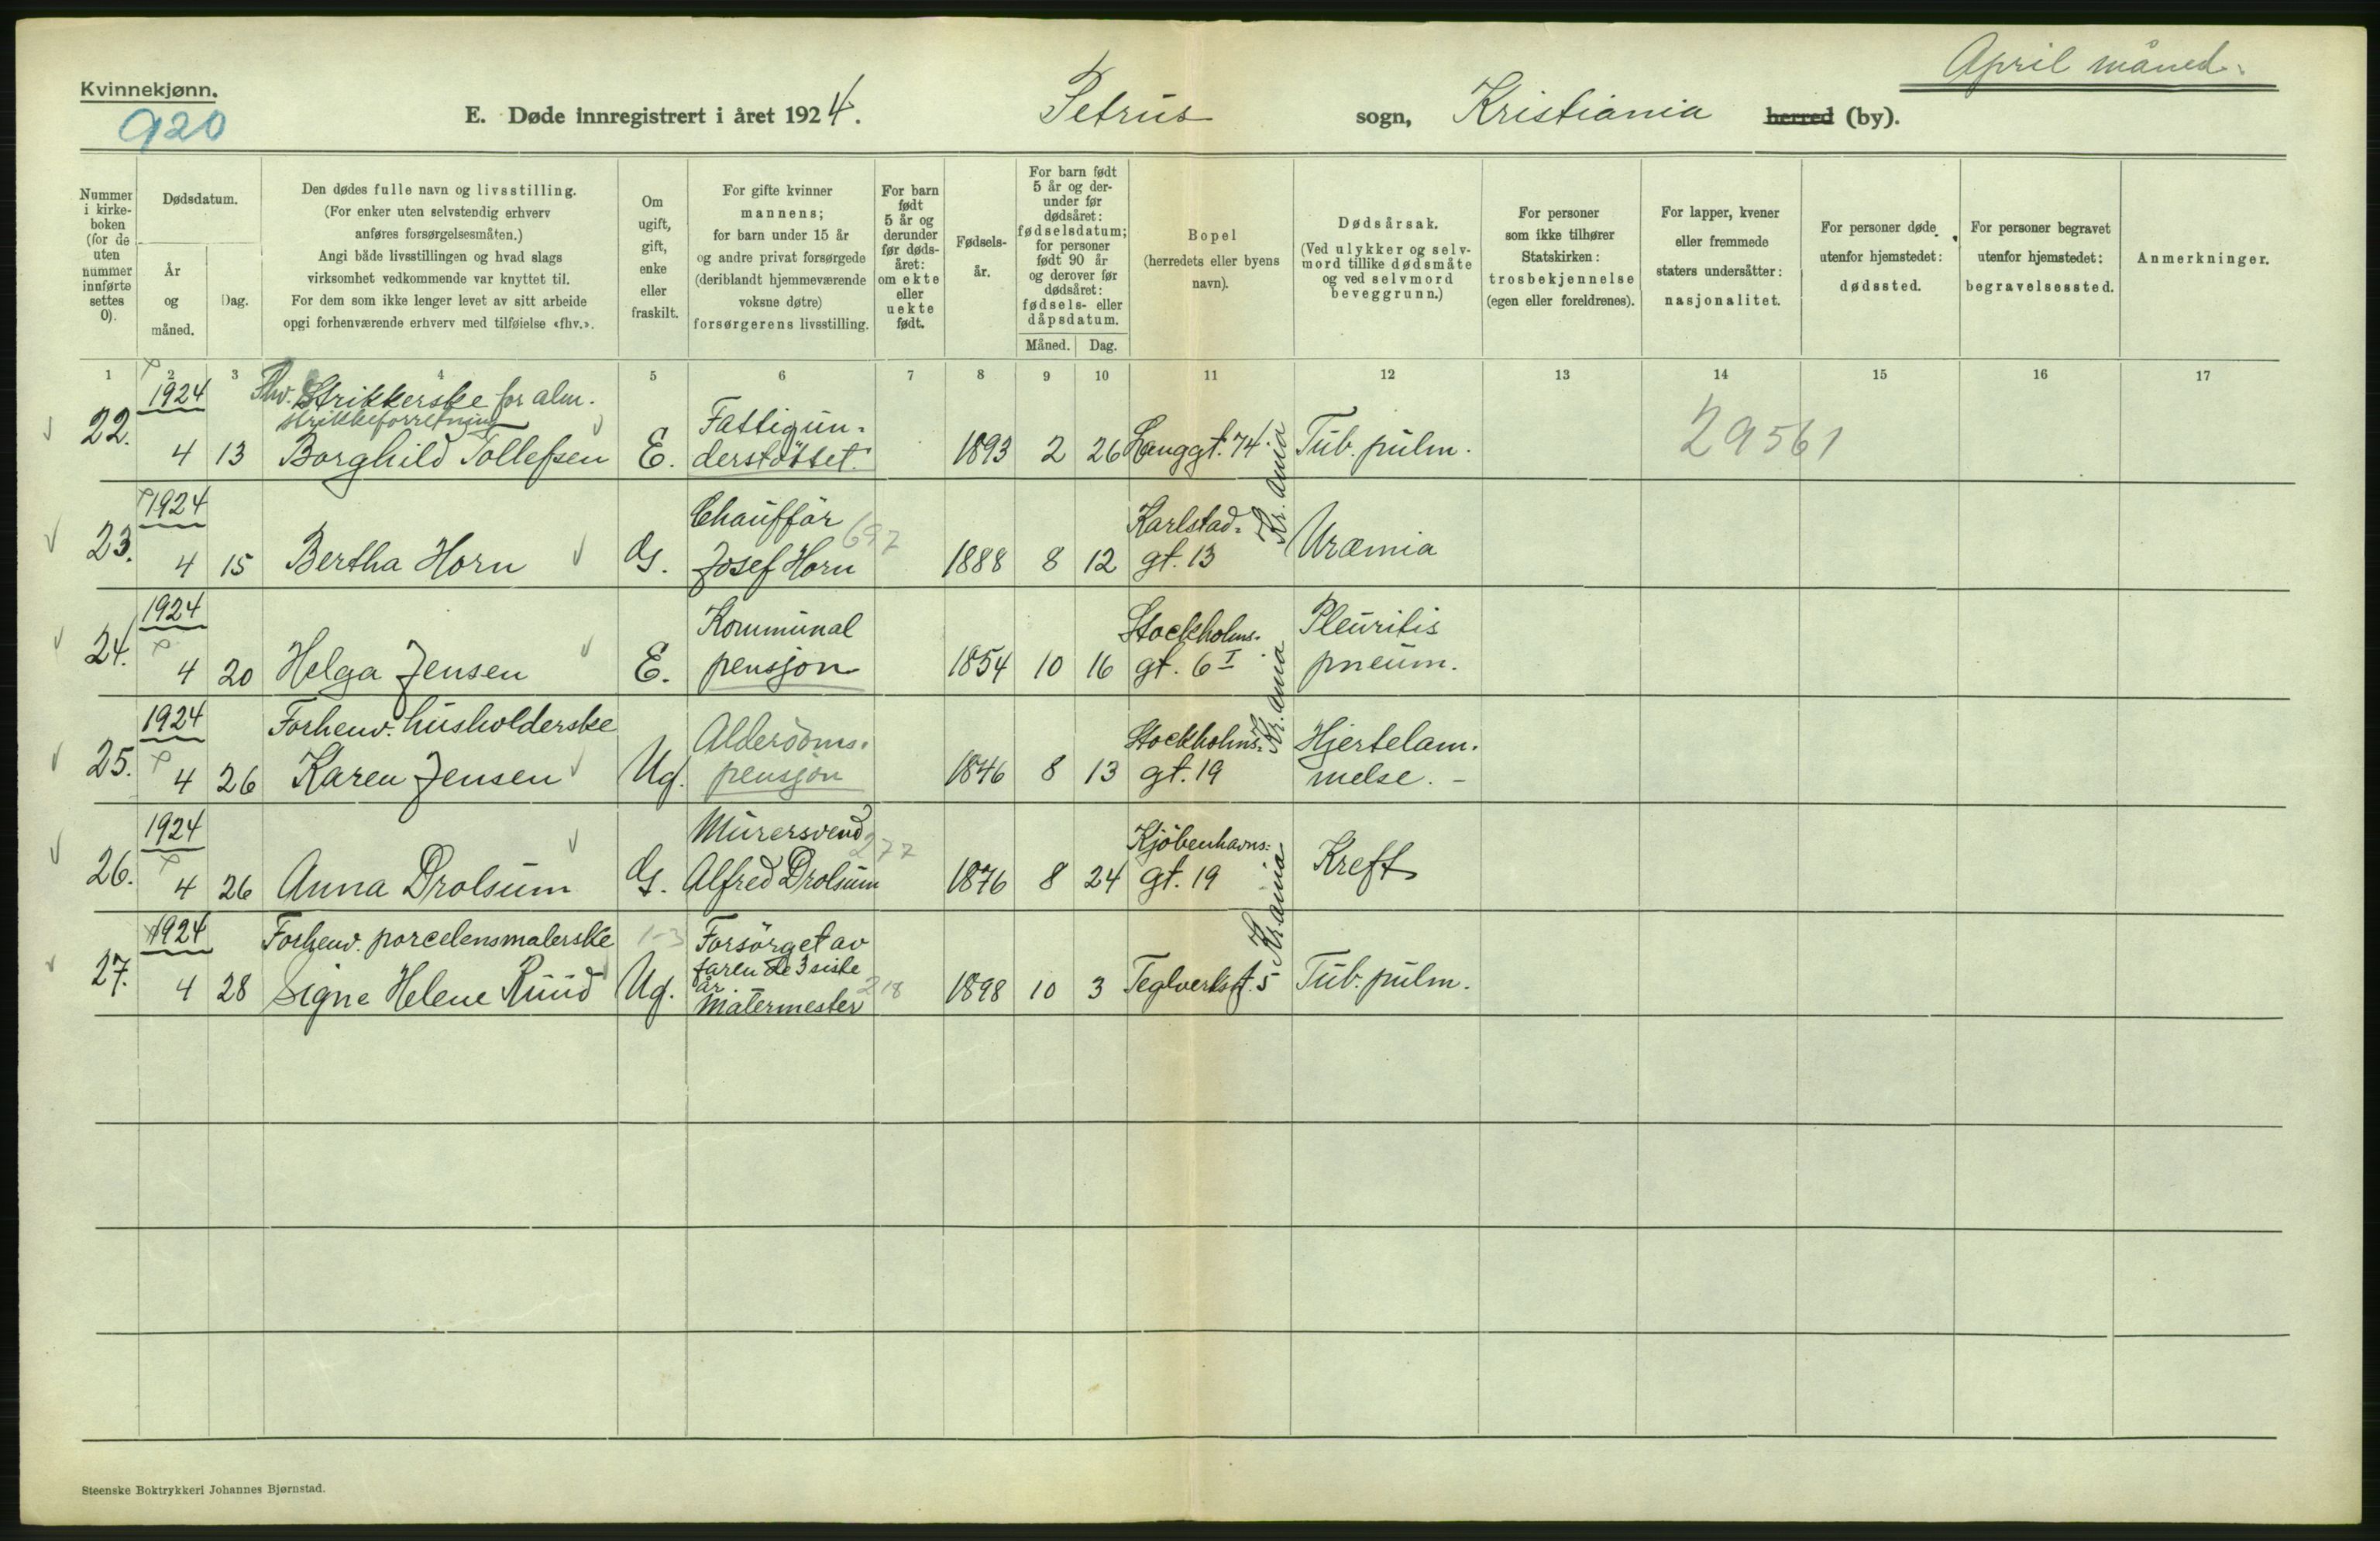 April måned.
Kvinnekjønn.
920
E. Døde innregistrert i året 1924.
Petrus sogn, Kristiania herred (by).
Nummer i kirke-boken (for de uten nummer innførte settes 0).
Dødsdatum.
År og måned.
Dag.
Den dødes fulle navn og livsstilling.
(For enker uten selvstendig erhverv anføres forsørgelsesmåten.)
Angi både livsstillingen og hvad slags virksomhet vedkommende var knyttet til.
For dem som ikke lenger levet av sitt arbeide opgi forhenværende erhverv med tilføielse «fhv.».
Om ugift, gift, enke eller fraskilt.
For gifte kvinner mannens; for barn under 15 år og andre privat forsørgede (deriblandt hjemmeværende voksne døtre) forsørgerens livsstilling.
For barn født 5 år og derunder før døds-året: om ekte eller uekte født.
Fødsels-år.
For barn født 5 år og der-under før dødsåret: fødselsdatum; for personer født 90 år og derover før dødsåret: fødsels- eller dåpsdatum.
Måned. Dag.
Bopel (herredets eller byens navn).
Dødsårsak. (Ved ulykker og selv-mord tillike dødsmåte og ved selvmord beveggrunn.)
For personer som ikke tilhører Statskirken: trosbekjennelse (egen eller foreldrenes).
For lapper, kvener eller fremmede staters undersåtter: nasjonalitet.
For personer døde utenfor hjemstedet: dødssted.
For personer begravet utenfor hjemstedet: begravelsessted.
Anmerkninger.
1 2 3 4 5 6 7 8 9 10 11 12 13 14 15 16 17
1924 Fhv. Strikkerske for alm. strikkeforretning
22. 4 13 Borghild Tollefsen E. Fattigun-derstøttet. 1893 2 26 Langgt. 74. Kr.ania Tub. pulm. 29561
1924
23. 4 15 Bertha Horn G. Chauffør Josef Horn 697 1888 8 12 Karlstad-gt. 13 Uræmia
1924
24. 4 20 Helga Jensen E. Kommunal pensjon 1854 10 16 Stockholms-gt. 6 I Kr.ania Pleuritis pneum.
1924 Forhenv. husholderske
25. 4 26 Karen Jensen Ug. Alderdoms-pensjon 1846 8 13 Stockholms-gt. 19 Hjertelam-melse. -
1924
26. 4 26 Anna Drolsum G. Murersvend Alfred Drolsum 277 1876 8 24 Kjøbenhavns-gt. 19 Kr.ania Kreft
1924 Forhenv. porcelensmalerske 1-3
27. 4 28 Signe Helene Ruud Ug. Forsørget av faren de 3 siste år. Malermester 218 1898 10 3 Teglverksgt. 5 Tub. pulm.
Steenske Boktrykkeri Johannes Bjørnstad.